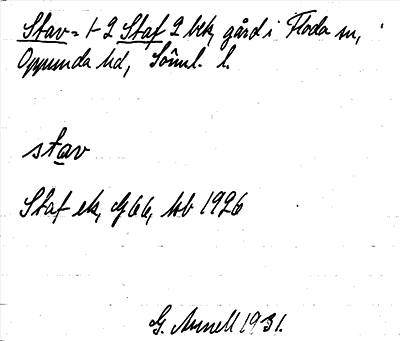 Stav = 1-2 Staf 2 blk, gård i Floda sn,
Oppunda hd, Söml. l.
stav
Staf ek, G66, hb 1926
G. Aunell 1931.